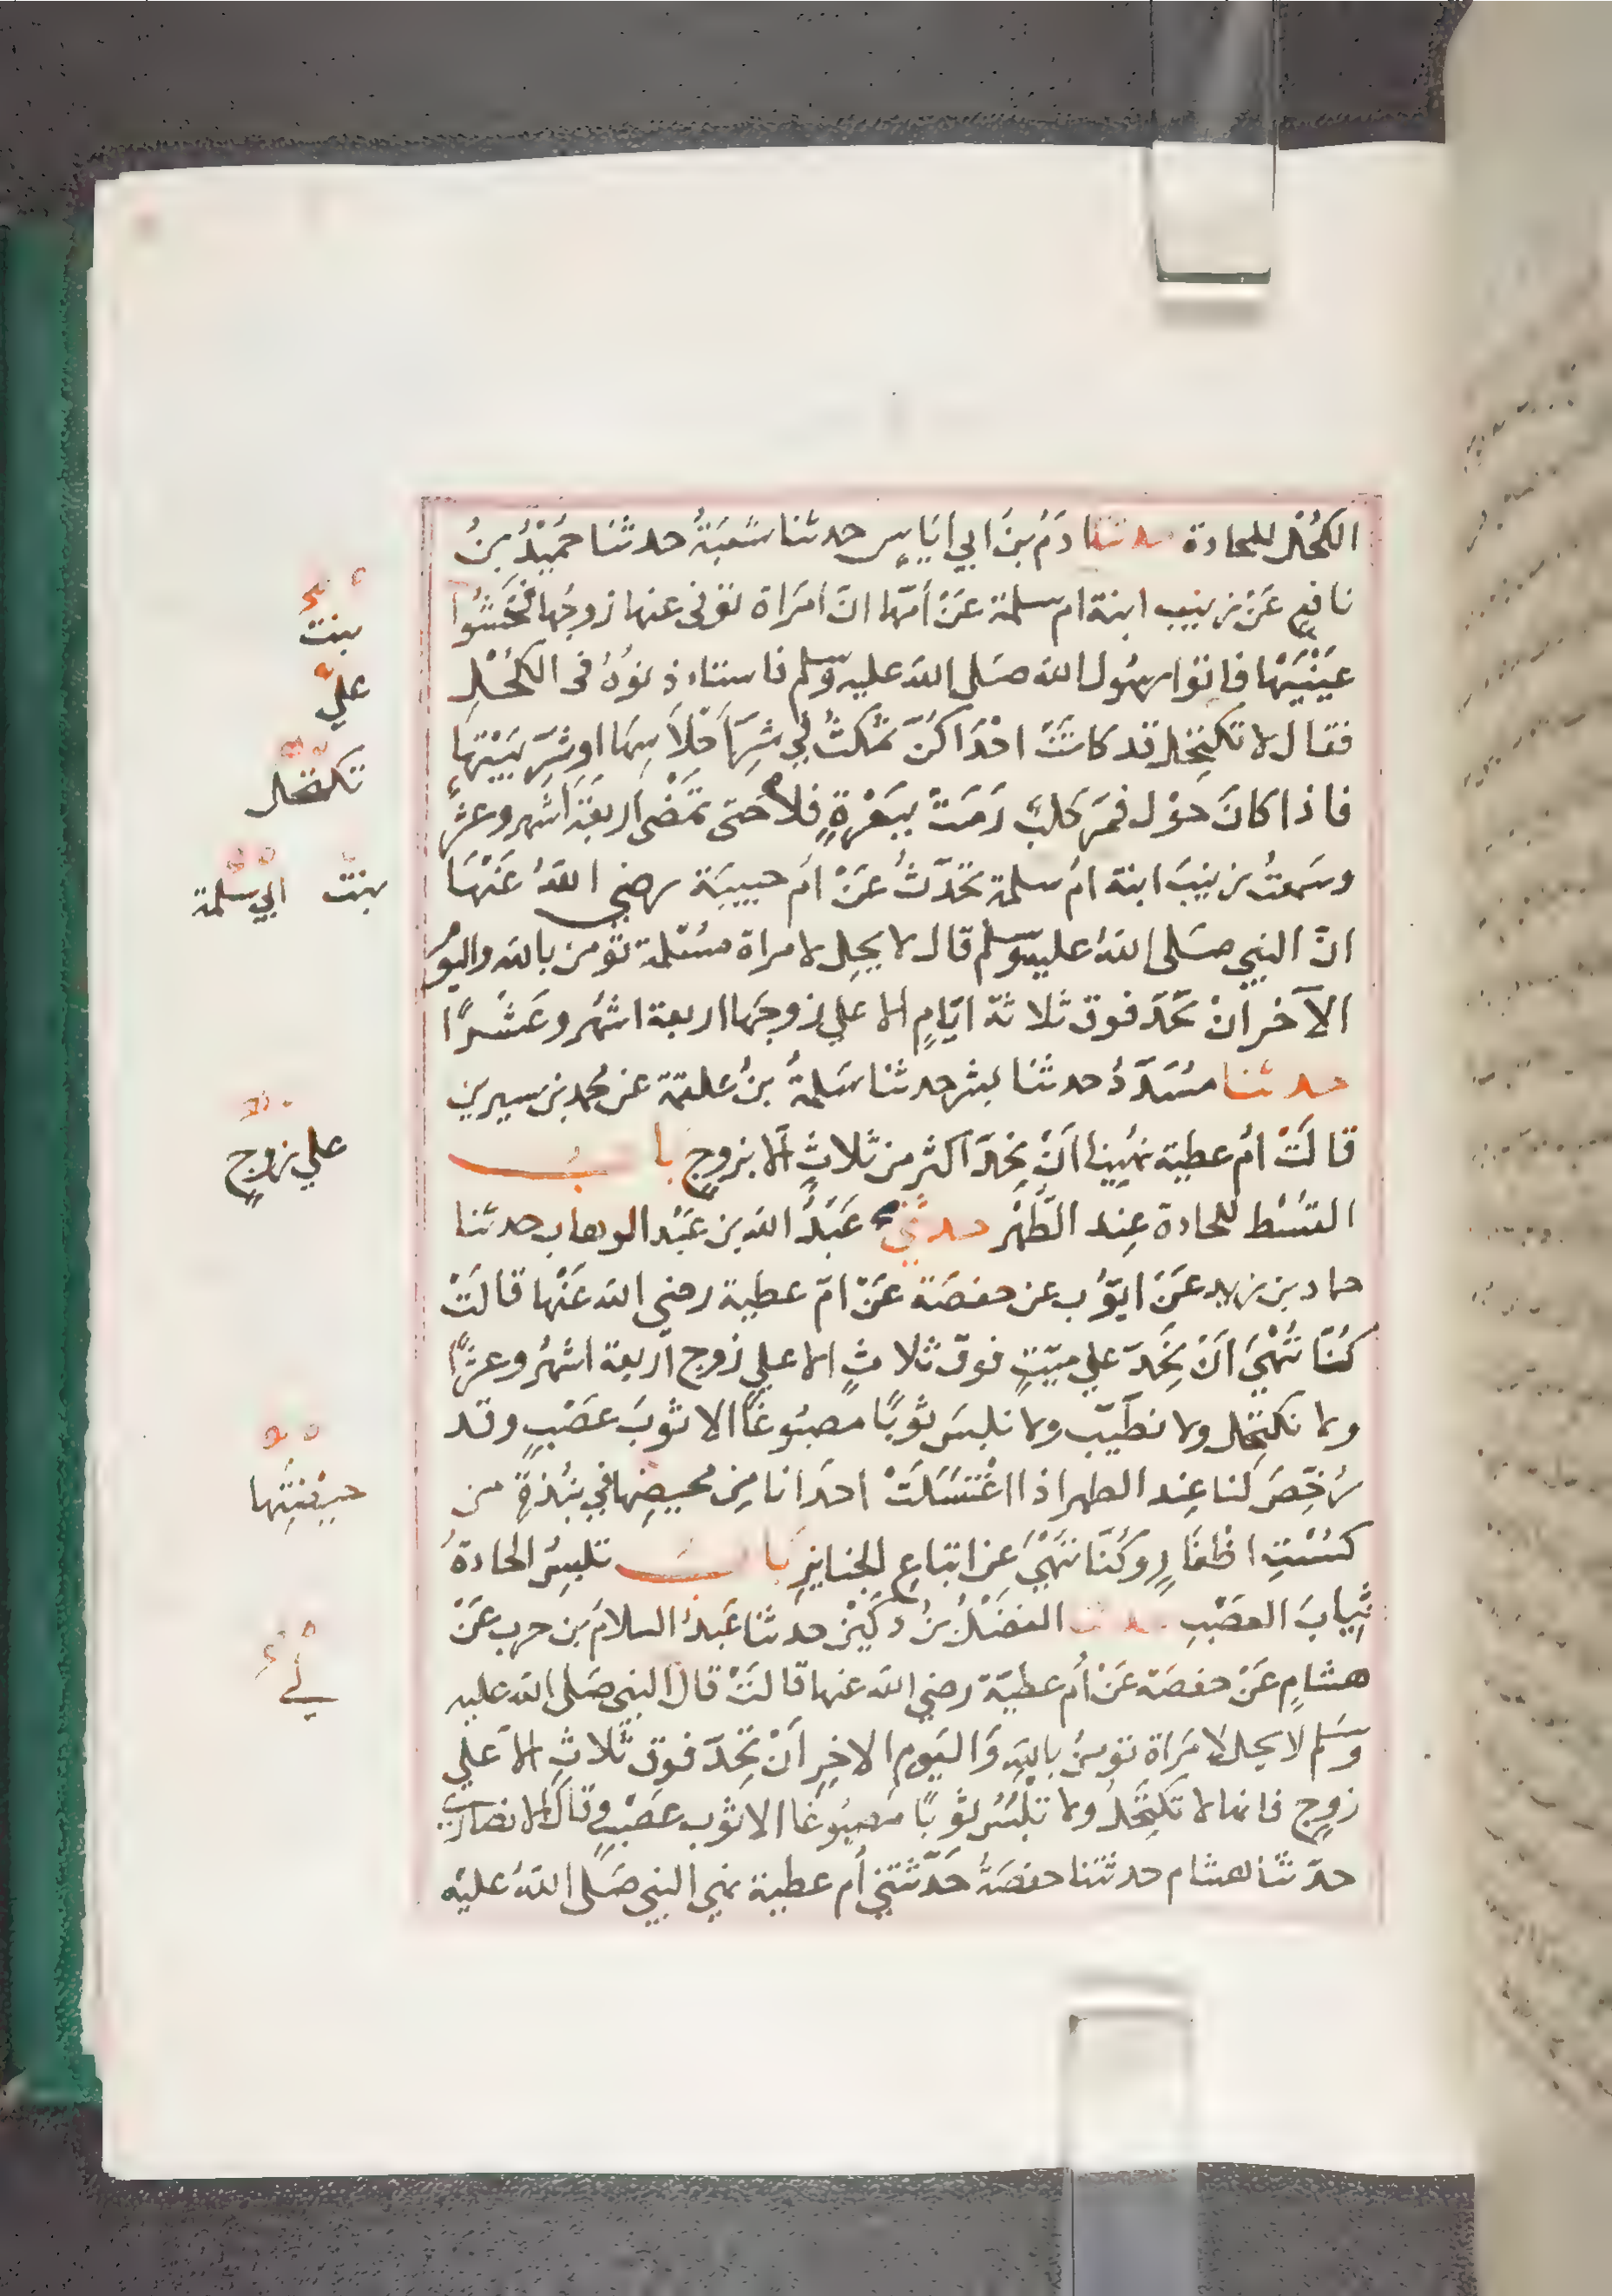 الكُحْل للحادة حدثنا ادَمُ بنُ ابي اِيَاسٍ حدثنا شُعْبَةُ حدثنا حُمَيْدُ بنُ
نافِعٍ عَنْ زينب ابنة ام سلمة عَنْ أمّها انّ امرَاة توفى عنها زوجُها فخَشُوا
عَيْنَيْهَا فاتوا رسُول الله صَلى الله عليه وسلم فاستاءذنوُهُ فى الكُحْلِ
فقال لا تكتحِل قد كانَتْ احْدَاكُنّ تمكثُ في شرِّ احْلاَسِهَا او شَرِّ بَيْتِهَا
فاذا كانَ حَوْل فمَر كَلبٌ رَمَتْ ببَعْرةٍ فلا حَتى تمْضى اَربَعَة اَشهر وعشر
وسَمعتُ زينبَ ابنة امُ سلمة تحَدّثُ عَنْ ام حبيبَة رضي اللهُ عَنْهَا
انّ النبي صَلى اللهُ عليه وسلم قال لا يحِل لامراة مُسْلمة تؤمن بالله واليوْم
الآخر انْ تحُدّ فوق ثلاثة ايّامٍ الا علي زوجهَا اربعة اشهُر وعَشْرًا
حدثنا مسُدّدُ حدثنا بشر حدثنا سَلمةُ بنُ علقمة عن محمد بن سيرين
قالَتْ امُ عطية نهُينا اَنْ نُحِدّ اكثر من ثلاثٍ الا بزوجٍ بابُ
القسُط للحادة عِند الطُهْر حدثني عَبْدُ الله بن عَبْد الوهاب حدثنا
حماد بن زيد عَنْ ايوُّب عن حفصَة عَنْ امّ عطية رضي الله عَنْها قالَتْ
كُنّا نُنْهَي اَنْ نحُدّ علي ميّتٍ فوق ثلاثٍ الا علي زوج اربعة اشهُر وعشرًا
ولا نكتحِل ولا نطَيّب ولا نلبسَ ثوبًا مصبُوغًا الا ثوبَ عصْبٍ وقد
رُخِّصَ لنا عِند الطهر اذا اغْتسَلَتْ احدَانا مِن محيضِها في نبُذةٍ من
كسُتِ اظفارٍ وكُنّا ننهَيْ عن اتباعِ الجنايزِ بابُ تلبسُ الحادةُ
ثِيابَ العصْبِ حدثنا الفضْلُ بنُ دُكَيْن حدثنا عَبدُ السلامَ بن حرب عَنْ
هشامٍ عَنْ حفصَة عَنْ أم عطيّة رضي الله عنها قالَتْ قالَ النبى صَلى الله عليه
وسَلم لا يحل لامرَاة تؤمنُ باللهِ وَاليَوم الاخِرِ اَنْ تحِدّ فوق ثلاثٍ الا علَي
زوجٍ فانها لا تكتحِلُ ولا تلْبَسُ ثوبًا مَصبُوغًا الا ثوْبَ عصْبٍ وقالَ الانصاري
حدّثنا هشام حدثتنا حفصَةُ حَدّثتني أم عطية نهي النبي صَلى اللهُ عليْه
بنت
عليّ
تكتحل
بنت ابي سَلمة
علي زوجٍ
حيْضتِها
لي